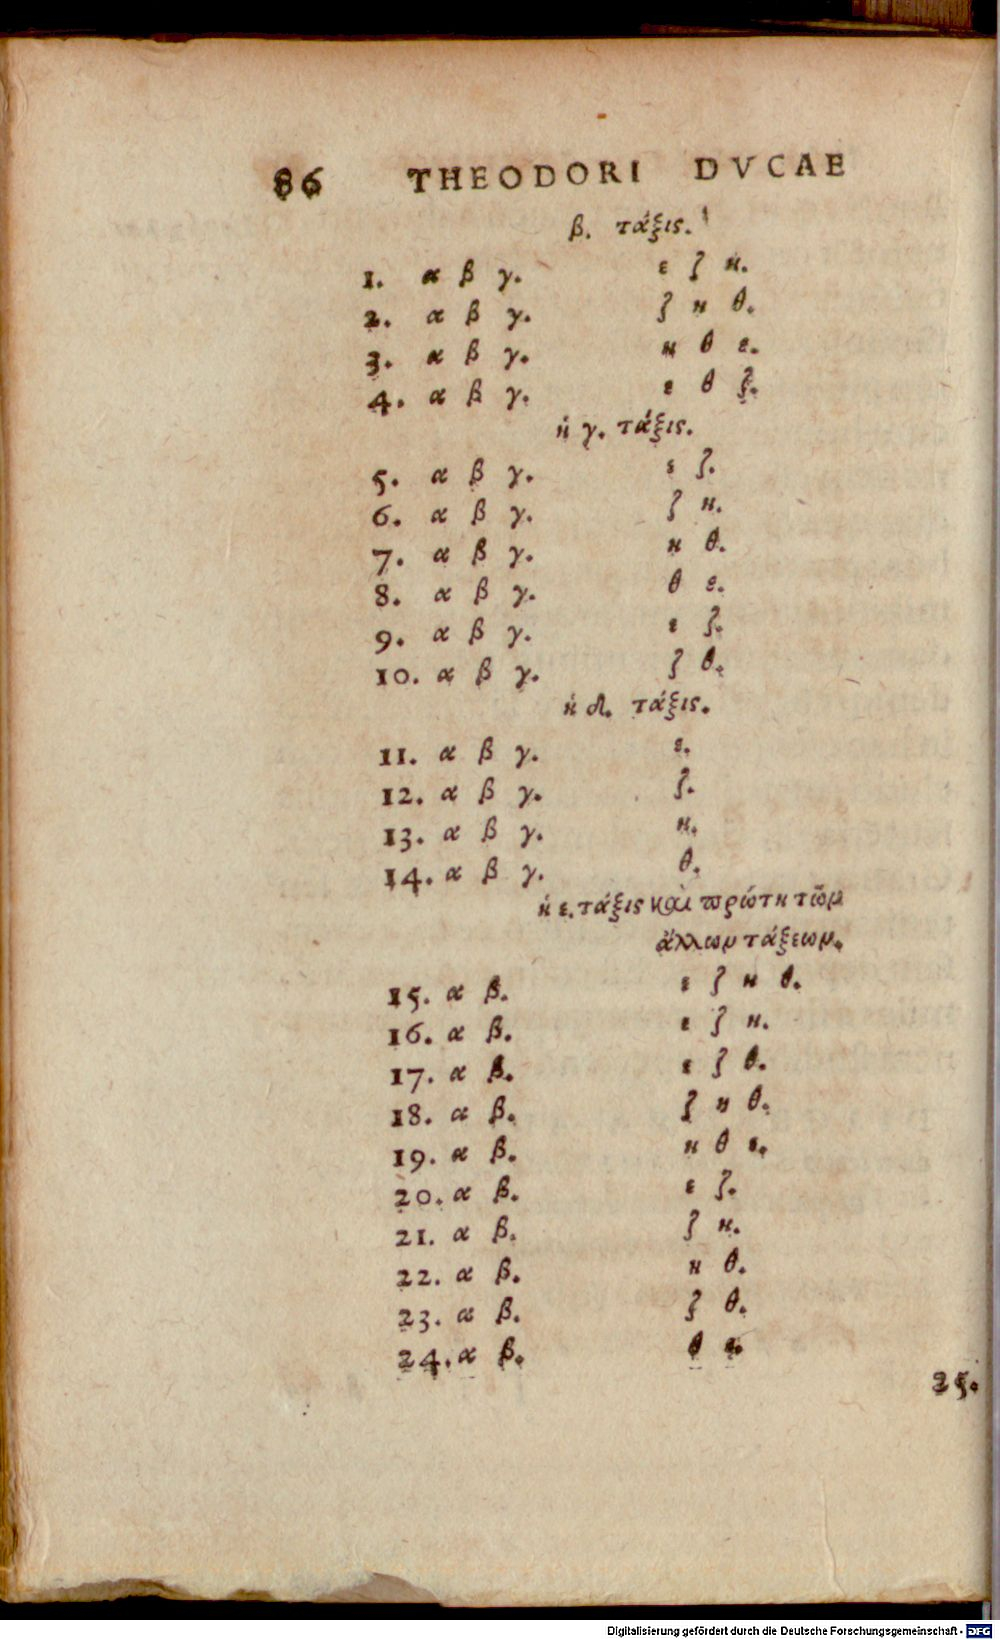 86 THEODORI DVCAE
β. τάξις.
1. α β γ. ε ζ η.
2. α β γ. ζ η θ.
3. α β γ. η θ ε.
4. α β γ. ε θ ζ.
ἡ γ. τάξις.
5. α β γ. ε ζ.
6. α β γ. ζ η.
7. α β γ. η θ.
8. α β γ. θ ε.
9. α β γ. ε ζ.
10. α β γ. ζ θ.
ἡ δ. τάξις.
11. α β γ. ε.
12. α β γ. ζ.
13. α β γ. η.
14. α β γ. θ.
ἡ ε. τάξις καὶ πρώτη τῶν
ἄλλων τάξεων.
15. α β. ε ζ η θ.
16. α β. ε ζ η.
17. α β. ε ζ θ.
18. α β. ζ η θ.
19. α β. η θ ε.
20. α β. ε ζ.
21. α β. ζ η.
22. α β. η θ.
23. α β. ζ θ.
24. α β. θ ε.
25.
Digitalisierung gefördert durch die Deutsche Forschungsgemeinschaft - DFG